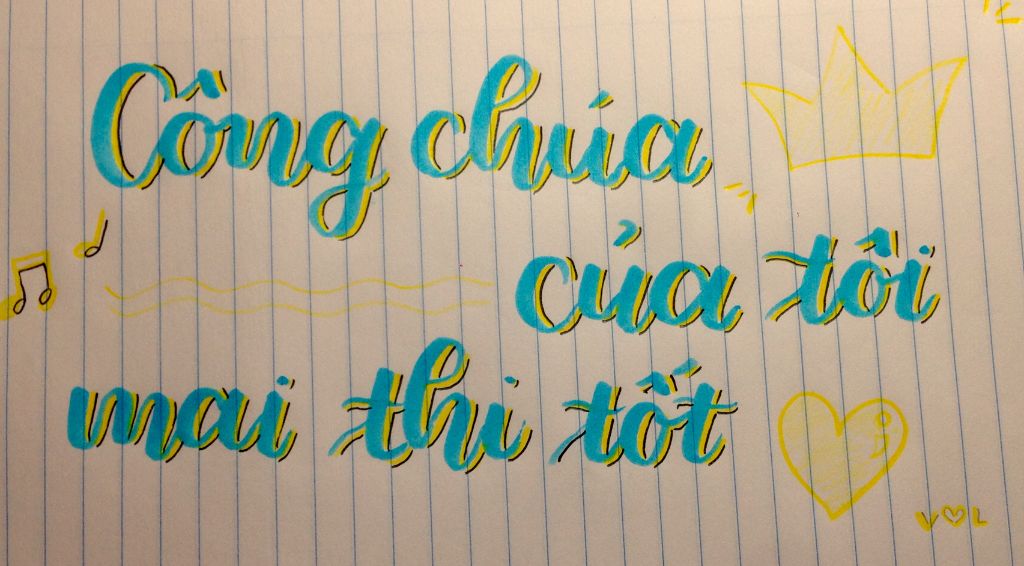 Công chúa
của tôi
mai thi tốt
V♡L